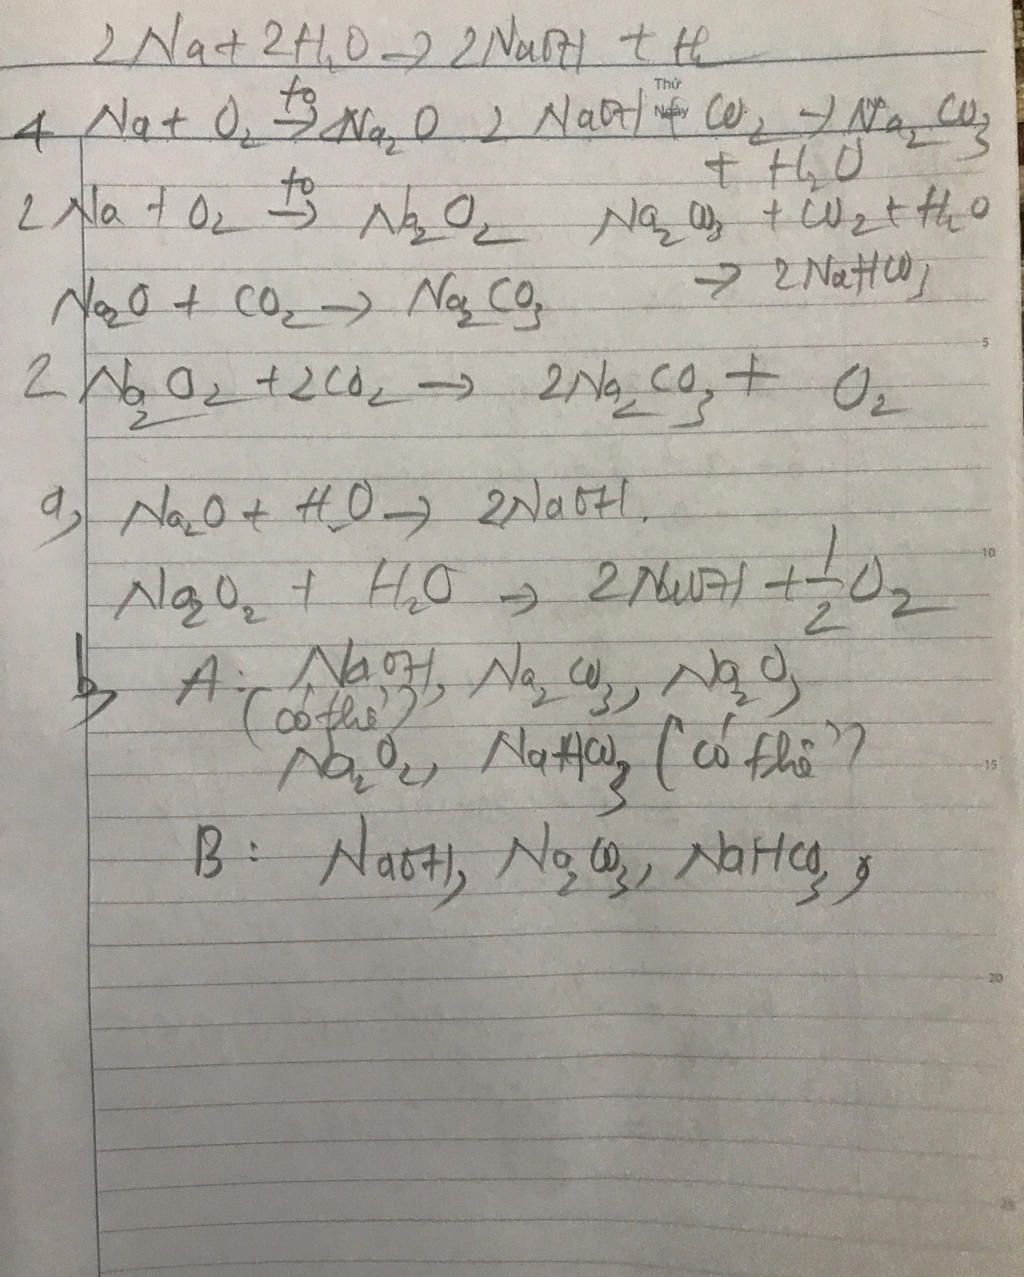 2Na + 2H₂O → 2NaOH + H
Thứ
Ngày
4 Na + O₂ →(t⁰) Na₂O 2 NaOH + CO₂ → Na₂CO₃
+ H₂O
2Na + O₂ →(t⁰) Na₂O₂ Na₂CO₃ + CO₂ + H₂O
→ 2NaHCO₃
Na₂O + CO₂ → Na₂CO₃
5
2 Na₂O₂ + 2CO₂ → 2Na₂CO₃ + O₂
a, Na₂O + H₂O → 2NaOH.
10
Na₂O₂ + H₂O → 2NaOH + 1/2 O₂
b, A: NaOH, Na₂CO₃, Na₂O,
(có thể)
Na₂O₂, NaHCO₃ (có thể)
15
B: NaOH, Na₂CO₃, NaHCO₃,
20
25